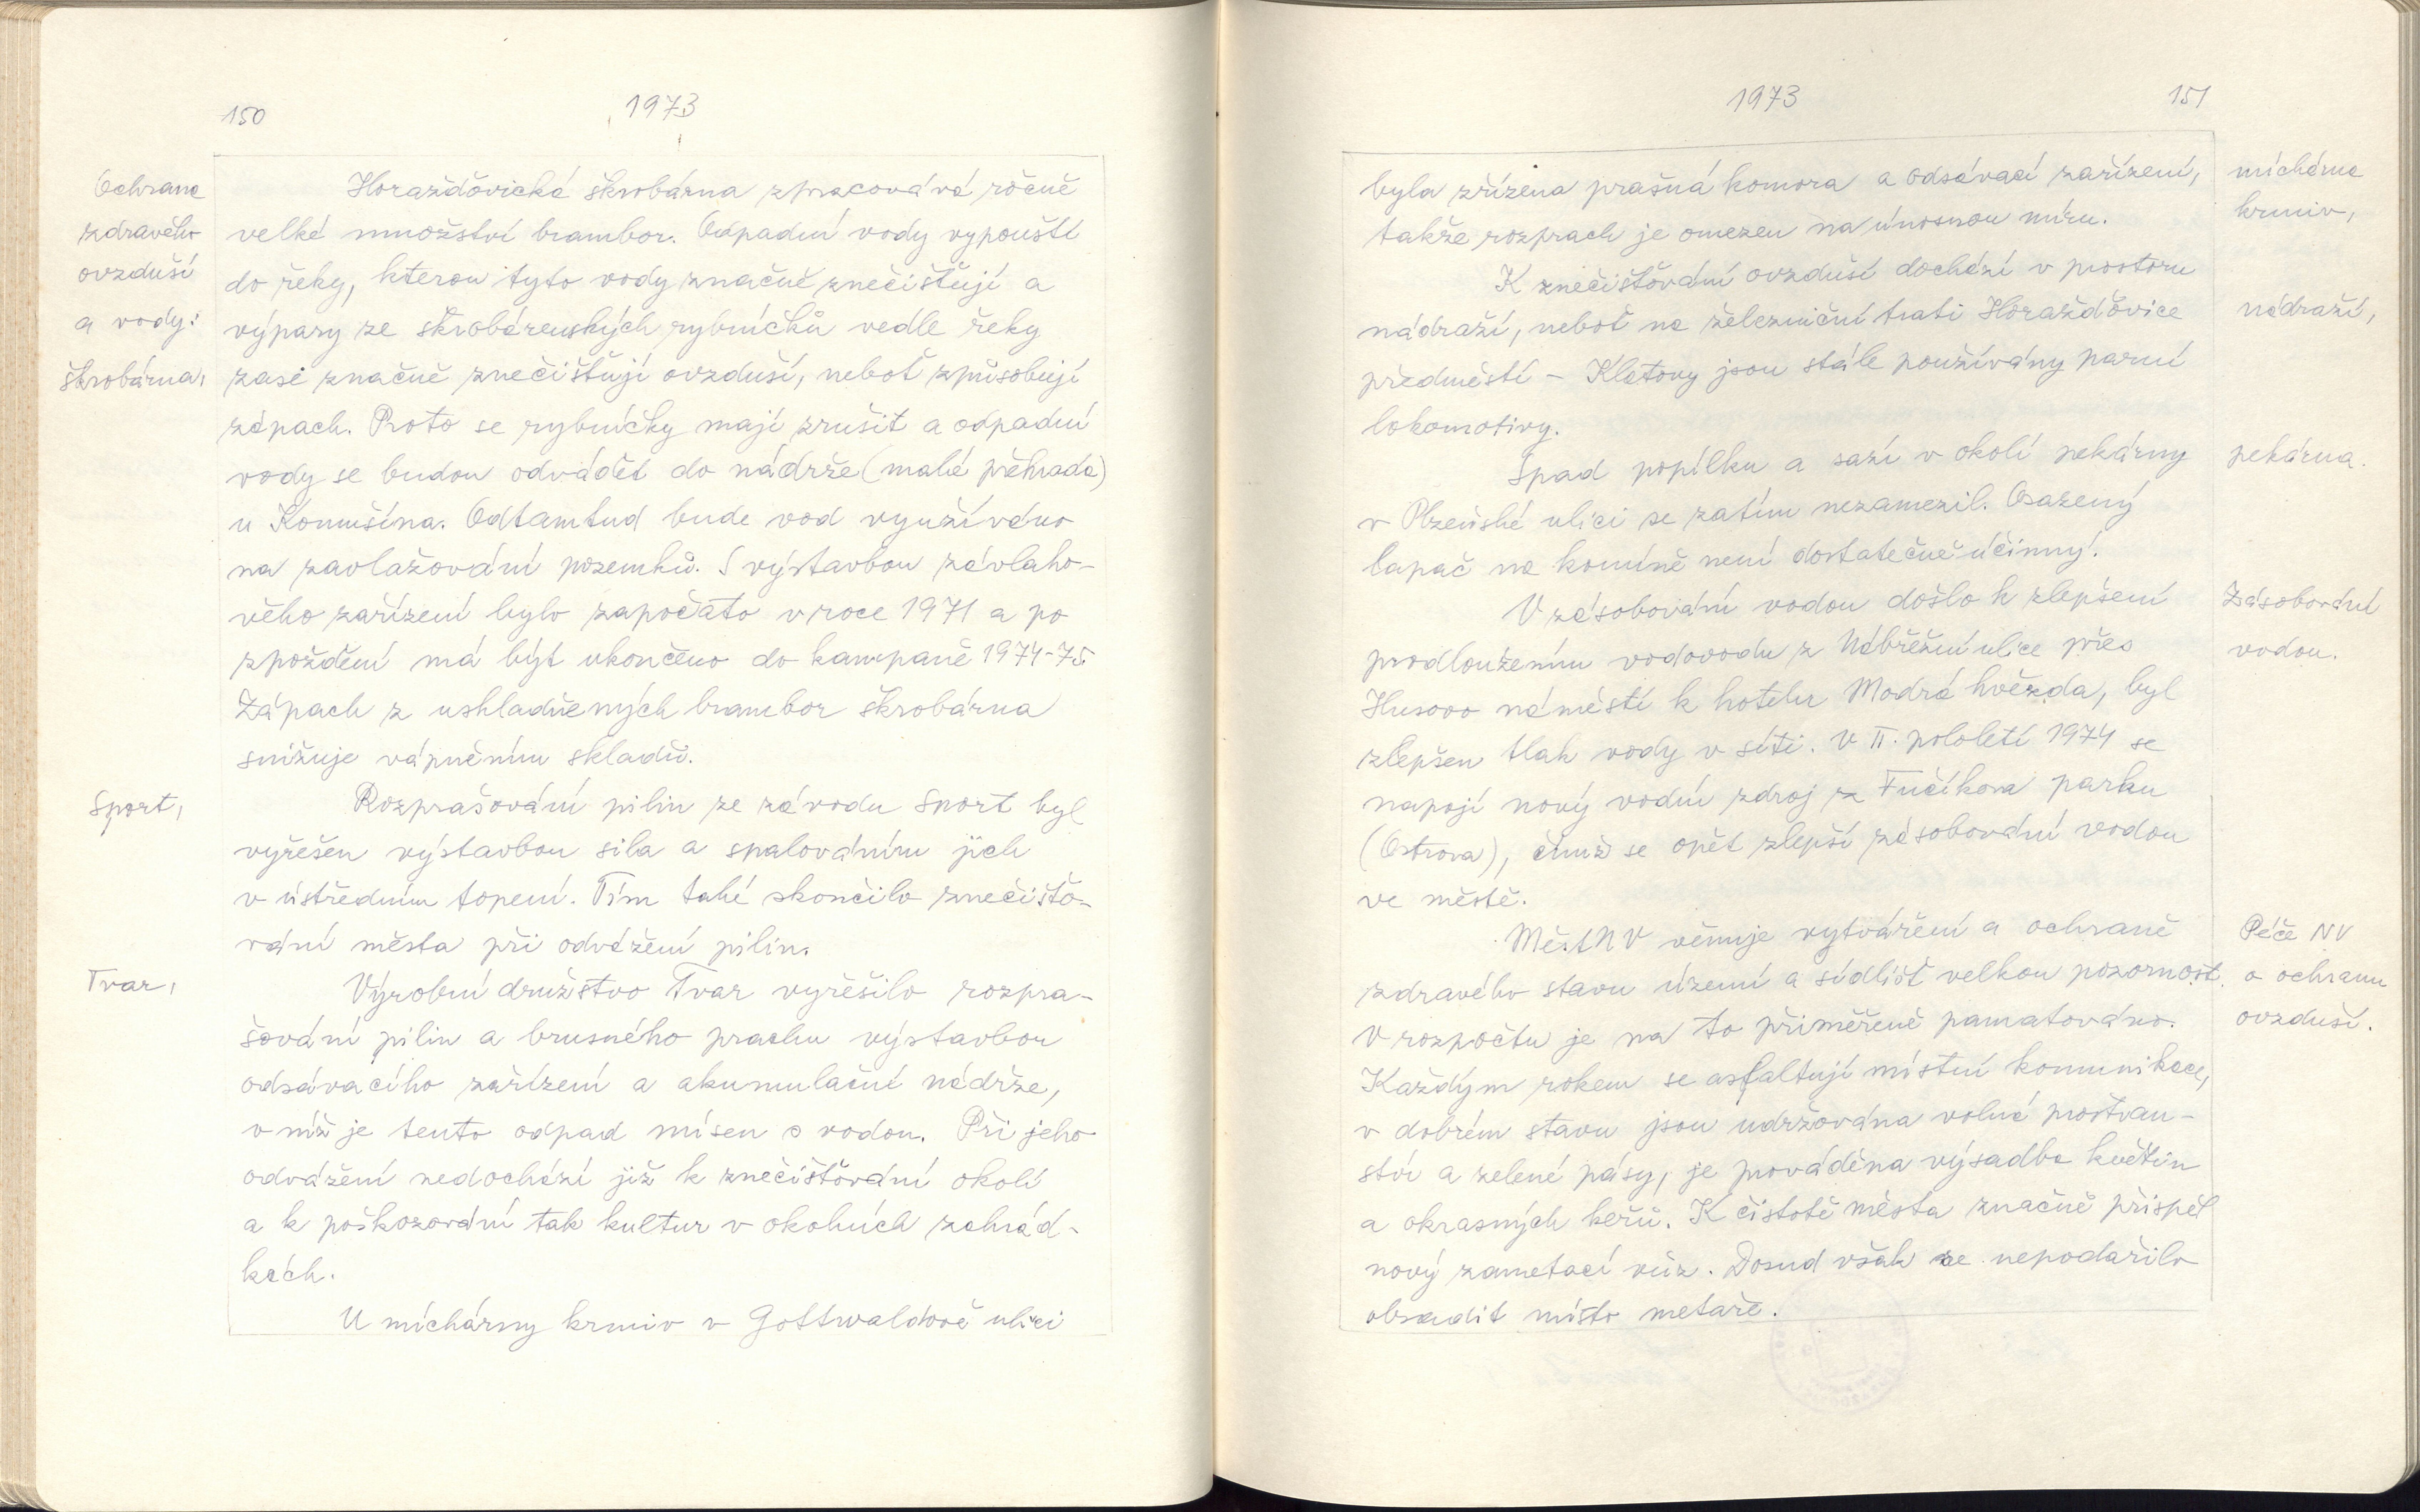 150
1973
Ochrana
zdravého
ovzduší
a vody:
škrobárna,
Horažďovická škrobárna zpracovává ročně
velké množství brambor. Odpadní vody vypouští
do řeky, kterou tyto vody značně znečišťují a
výpary ze škrobárenských rybníčků vedle řeky
zase značně znečišťují ovzduší, neboť způsobují
zápach. Proto se rybníčky mají zrušit a odpadní
vody se budou odvádět do nádrže (malá přehrada)
u Komušína. Odtamtud bude vod využíváno
na zavlažování pozemků. S výstavbou závlaho-
vého zařízení bylo započato v roce 1971 a po
zpoždění má být ukončeno do kampaně 1974-75.
Zápach z uskladněných brambor škrobárna
snižuje vápněním skladů.
Sport,
Rozprašování pilin ze závodu Sport byl
vyřešen výstavbou sila a spalováním jich
v ústředním topení. Tím také skončilo znečišťo-
vání města při odvážení pilin.
Tvar,
Výrobní družstvo Tvar vyřešilo rozpra-
šování pilin a brusného prachu výstavbou
odsávacího zařízení a akumulační nádrže,
v níž je tento odpad mísen s vodou. Při jeho
odvážení nedochází již k znečišťování okolí
a k poškozování tak kultur v okolních zahrád-
kách.
U míchárny krmiv v Gottwaldově ulici
1973
151
byla zřízena prašná komora a odsávací zařízení,
takže rozprach je omezen na únosnou míru.
míchárna
krmiv,
K znečišťování ovzduší dochází v prostoru
nádraží, neboť na železniční trati Horažďovice
předměstí - Klatovy jsou stále používány parní
lokomotivy.
nádraží,
Spad popílku a sazí v okolí pekárny
v Plzeňské ulici se zatím nezamezil. Osazený
lapač na komíně není dostatečně účinný.
pekárna.
V zásobování vodou došlo k zlepšení
prodloužením vodovodu z Nábřežní ulice přes
Husovo náměstí k hotelu Modrá hvězda, byl
zlepšen tlak vody v síti. V II. pololetí 1974 se
napojí nový vodní zdroj z Fučíkova parku
(Ostrova), čímž se opět zlepší zásobování vodou
ve městě.
Zásobování
vodou.
MěstNV věnuje vytváření a ochraně
zdravého stavu území a sídlišť velkou pozornost.
V rozpočtu je na to přiměřeně pamatováno.
Každým rokem se asfaltují místní komunikace,
v dobrém stavu jsou udržována volná prostran-
ství a zelené pásy, je prováděna výsadba květin
a okrasných keřů. K čistotě města značně přispěl
nový zametací vůz. Dosud však se nepodařilo
obsadit místo metaře.
Péče NV
o ochranu
ovzduší.